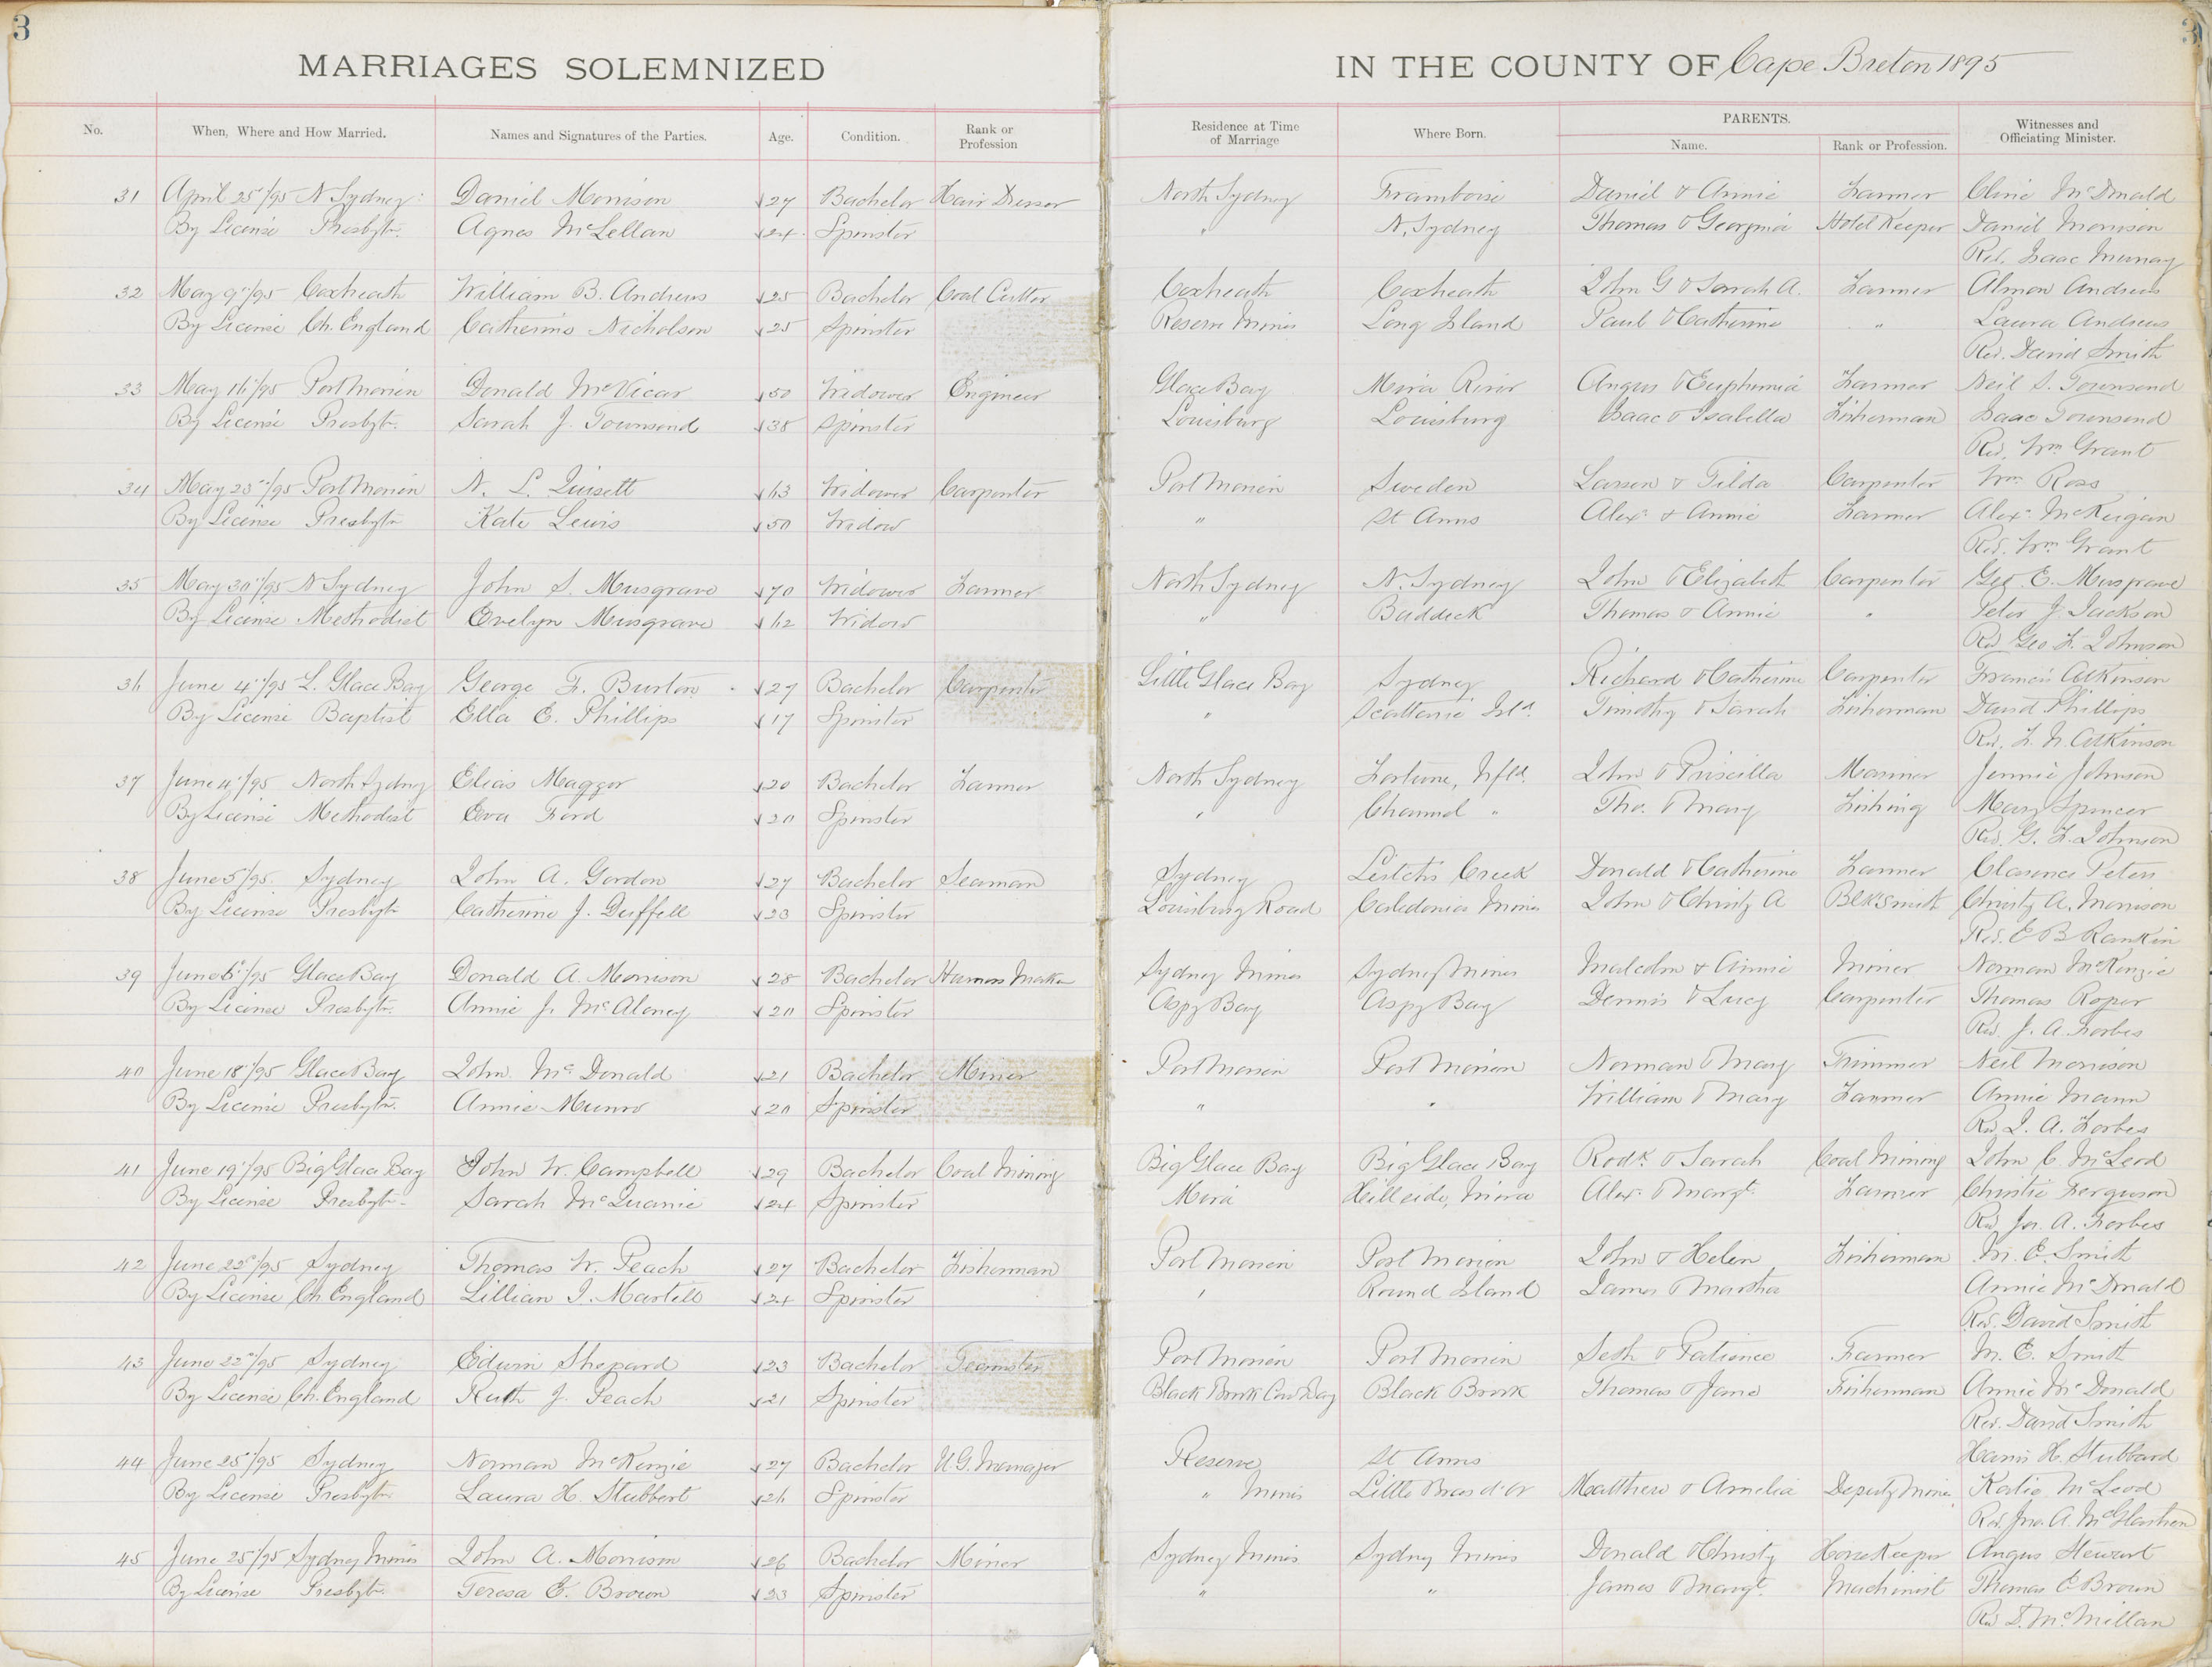 3
3
MARRIAGES SOLEMNIZED IN THE COUNTY OF Cape Breton 1895
No. When, Where and How Married. Names and Signatures of the Parties. Age. Condition. Rank or Profession Residence at Time of Marriage Where Born. PARENTS. Name. Rank or Profession. Witnesses and Officiating Minister.
31 April 25"/95 N Sydney Daniel Morrison 27 Bachelor Hair Dresser North Sydney Framboise Daniel & Annie Farmer Clinie McDonald
By License Presbytn. Agnes McLellan 24 Spinster " N. Sydney Thomas & Georginia Hotel Keeper Daniel Morrison
Rev. Isaac Murray
32 May 9"/95 Coxheath William B. Andrews 25 Bachelor Coal Cutter Coxheath Coxheath John G & Sarah A. Farmer Almon Andrews
By License Ch. England Catherine Nicholson 25 Spinster Reserve Mines Long Island Paul & Catherine " Laura Andrews
Rev. David Smith
33 May 16"/95 Port Morien Donald McVicar 50 Widower Engineer Glace Bay Mira River Angus & Euphemia Farmer Neil S. Townsend
By License Presbytn. Sarah J. Townsend 38 Spinster Louisburg Louisburg Isaac & Isabella Fisherman Isaac Townsend
Rev. Wm Grant
34 May 23"/95 Port Morien N. L. 63 Widower Carpenter Port Morien Sweden Larsen & Tilda Carpenter Wm Ross
By License Presbytn Kate Lewis 50 Widow " St Anns Alexr & Annie Farmer Alexr McKeigan
Rev. Wm Grant
35 May 30"/95 N Sydney John S. Musgrave 70 Widower Farmer North Sydney N. Sydney John & Elizabeth Carpenter Geo. E. Musgrave
By License Methodist Evelyn Musgrave 62 Widow " Baddeck Thomas & Annie " Peter J. Jackson
Rev Geo F. Johnson
36 June 4"/95 L. Glace Bay George F. Burton 27 Bachelor Carpenter Little Glace Bay Sydney Richard & Catherine Carpenter Francis Atkinson
By License Baptist Ella E. Phillips 17 Spinster " Scattarie Isld. Timothy & Sarah Fisherman David Phillips
Rev. F. N. Atkinson
37 June 4"/95 North Sydney Elias Maggor 20 Bachelor Farmer North Sydney Fortune, Nfld. John & Priscilla Mariner Jennie Johnson
By License Methodist Eva Ford 20 Spinster " Channel " Tho. & Mary Fishing Mary Spencer
Rev. G. F. Johnson
38 June 5"/95 Sydney John A. Gordon 27 Bachelor Seaman Sydney Leitches Creek Donald & Catherine Farmer Clarence Peters
By License Presbytn Catherine J. Duffell 23 Spinster Louisburg Road Caledonia Mines John & Christy A Blksmith Christy A. Morrison
Rev. E B Rankin
39 June 6"/95 Glace Bay Donald A. Morrison 28 Bachelor Harness Maker Sydney Mines Sydney Mines Malcolm & Annie Miner Norman McKenzie
By License Presbytn. Annie J. McAloney 20 Spinster Aspy Bay Aspy Bay Dennis & Lucy Carpenter Thomas Roper
Rev. J. A. Forbes
40 June 18"/95 Glace Bay John McDonald 21 Bachelor Miner Port Morien Port Morien Norman & Mary Trimmer Neil Morrison
By License Presbytn. Annie Munro 20 Spinster " " William & Mary Farmer Annie Mann
Rev J. A. Forbes
41 June 19"/95 Big Glace Bay John W. Campbell 29 Bachelor Coal Mining Big Glace Bay Big Glace Bay Rodk. & Sarah Coal Mining John C. McLeod
By License Presbytn. Sarah McQuanie 24 Spinster Mira Hillside, Mira Alexr & Margt. Farmer Christie Ferguson
Rev Jn. A. Forbes
42 June 22"/95 Sydney Thomas W. Peach 27 Bachelor Fisherman Port Morien Port Morien John & Helen Fisherman M. E. Smith
By License Ch England Lillian J. Martell 24 Spinster " Round Island James & Martha Annie McDonald
Rev. David Smith
43 June 22"/95 Sydney Edwin Shepard 23 Bachelor Teamster Port Morien Port Morien Seth & Patience Farmer M. E. Smith
By License Ch. England Ruth J. Peach 21 Spinster Black Brook Cow Bay Black Brook Thomas & Jane Fisherman Annie McDonald
Rev. David Smith
44 June 25"/95 Sydney Norman McKenzie 27 Bachelor U.G. Manager Reserve St Anns Harris H. Stubbard
By License Presbytn Laura H. Stubbert 26 Spinster " Mines Little Bras d'Or Matthew & Amelia Deputy Mines Katie McLeod
Rev. Jno. A. McGlashen
45 June 25"/95 Sydney Mines John A. Morrison 26 Bachelor Miner Sydney Mines Sydney Mines Donald & Christy Horse Keeper Angus Stewart
By License Presbytn. Teresa E. Brown 23 Spinster " " James & Margt. Machinist Thomas E Brown
Rev D. McMillan